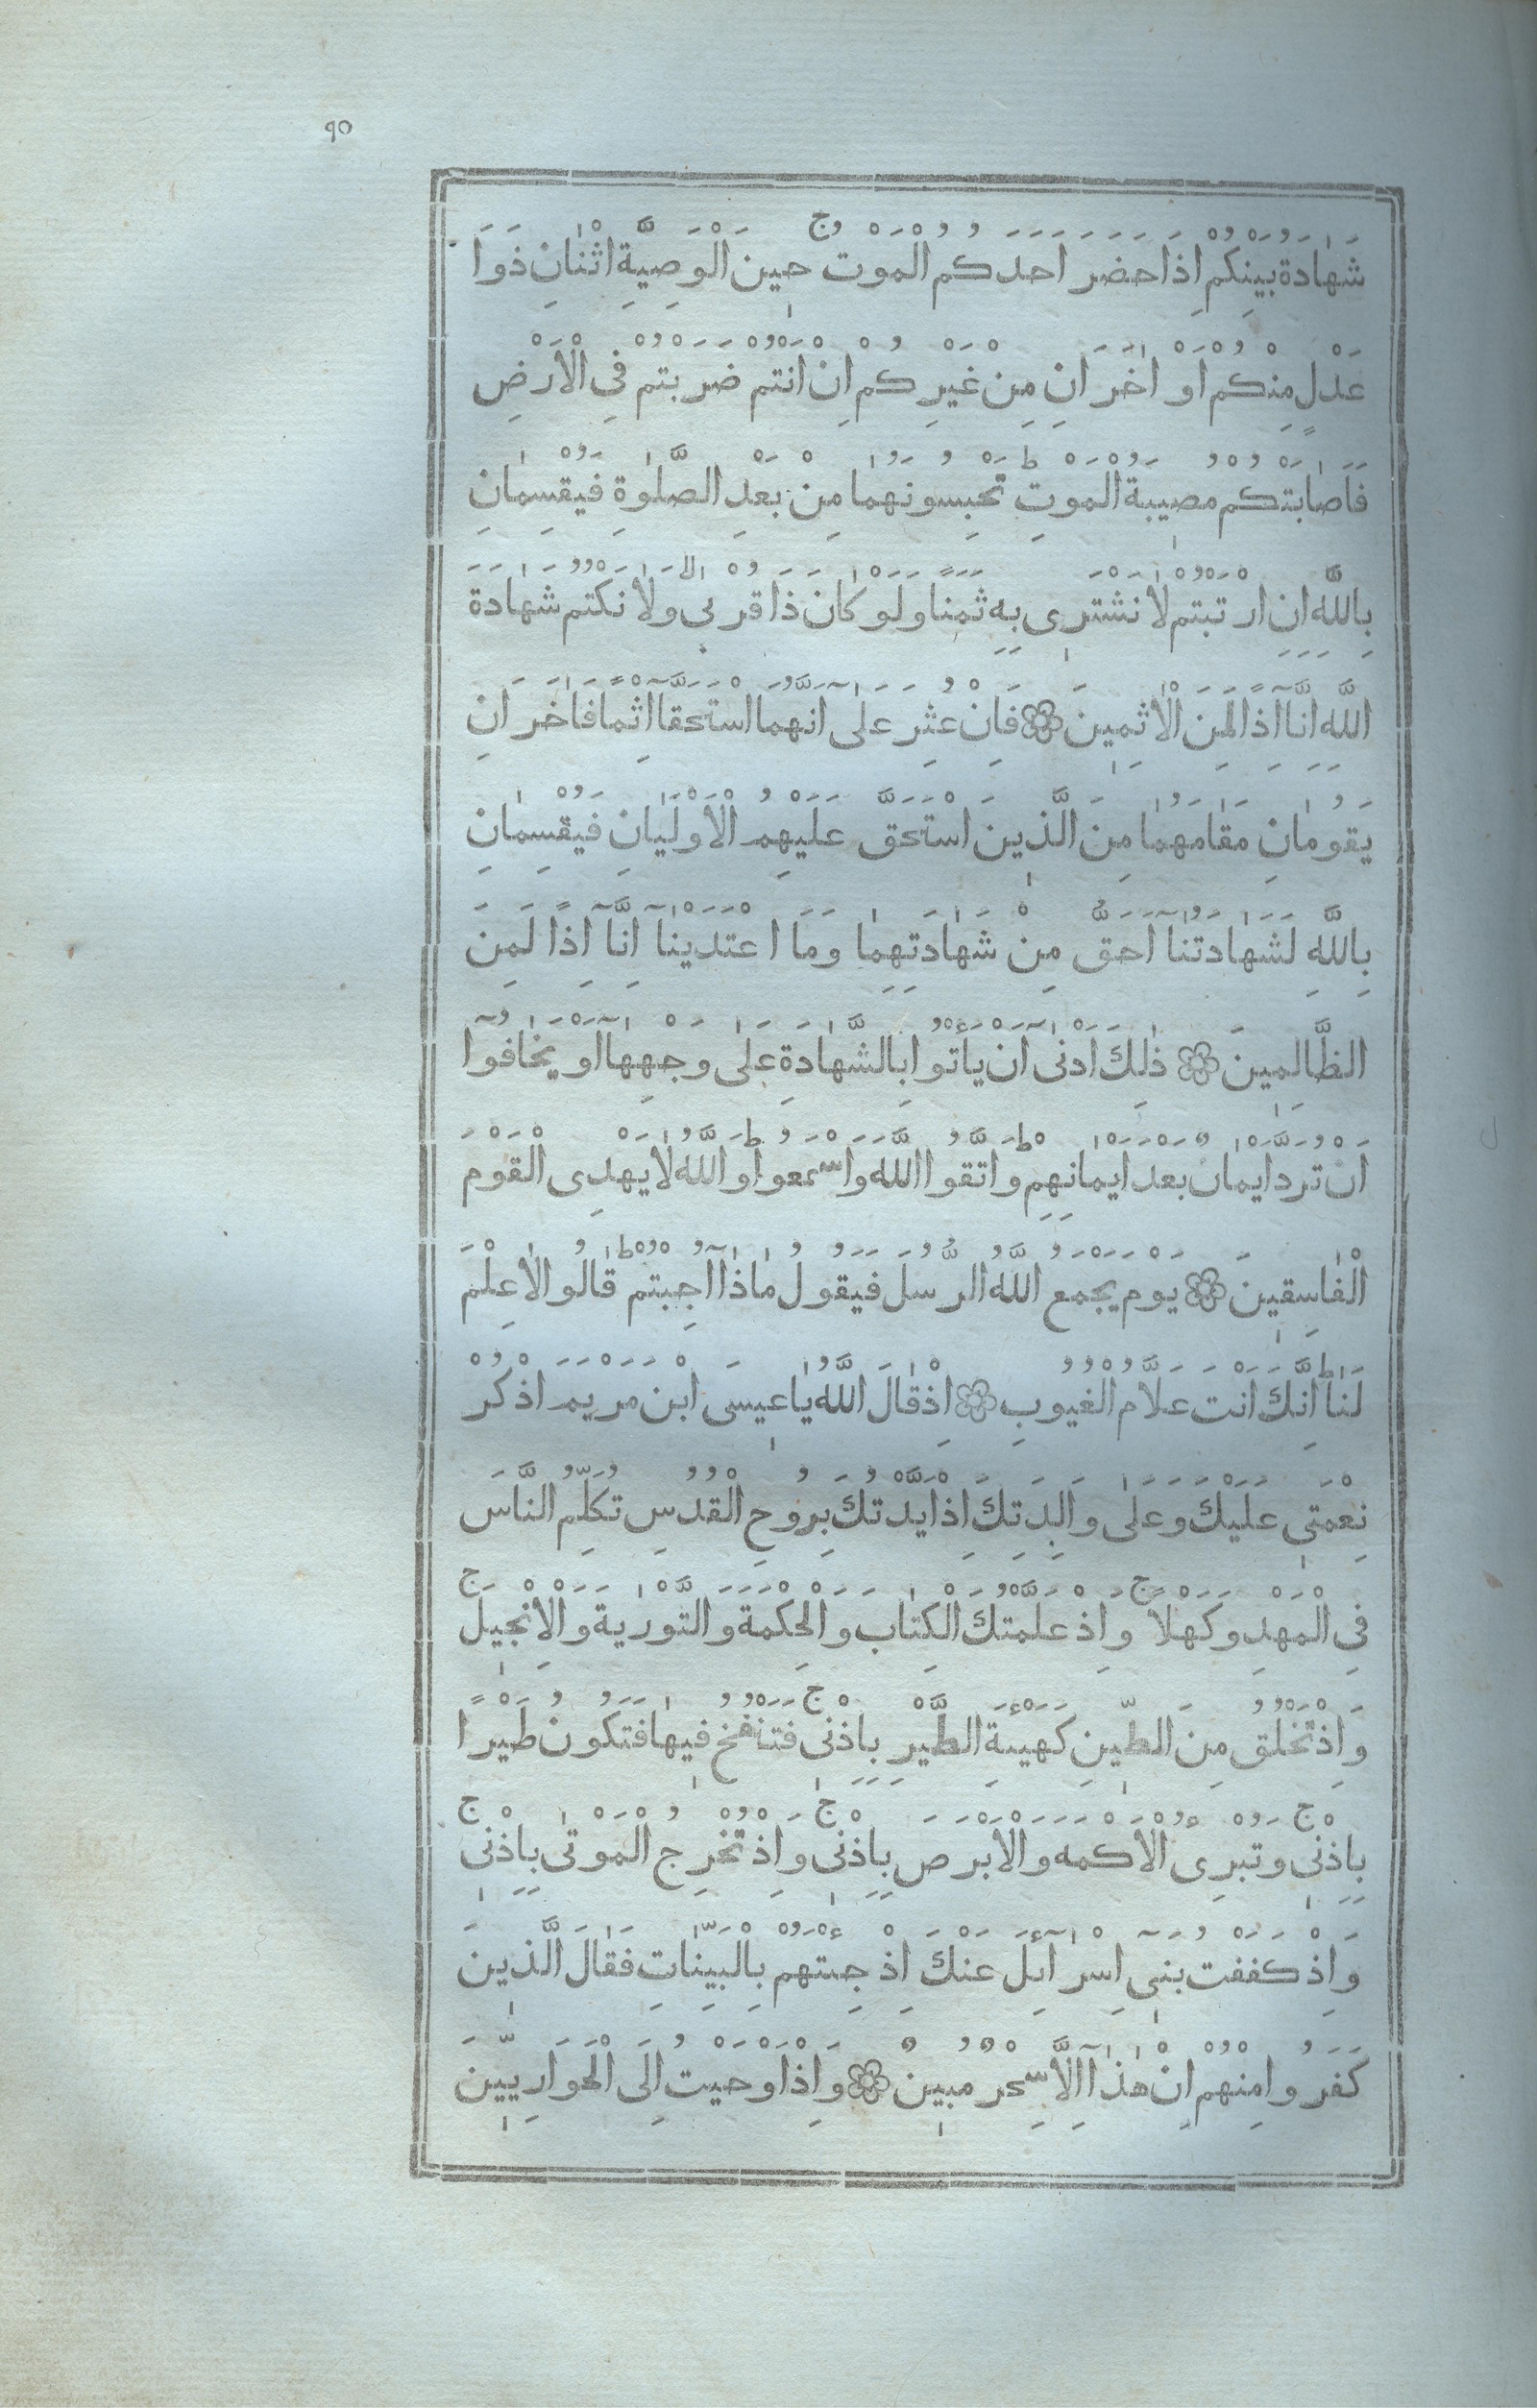 ٩٥
شَهَادَةُ بَيْنِكُمْ اِذَا حَضَرَ اَحَدَكُمُ الْمَوْتُ ج حِينَ الْوَصِيَّةِ اثْنَانِ ذَوَا
عَدْلٍ مِنْكُمْ اَوْ اٰخَرَانِ مِنْ غَيْرِكُمْ اِنْ اَنْتُمْ ضَرَبْتُمْ فِى الْاَرْضِ
فَاَصَابَتْكُمْ مُصِيبَةُ الْمَوْتِ ط تَحْبِسُونَهُمَا مِنْ بَعْدِ الصَّلٰوةِ فَيُقْسِمَانِ
بِاللّٰهِ اِنِ ارْتَبْتُمْ لَا نَشْتَرِى بِهِ ثَمَنًا وَلَوْ كَانَ ذَا قُرْبٰى لا وَلَا نَكْتُمُ شَهَادَةَ
اللّٰهِ اِنَّآ اِذًا لَمِنَ الْاٰثِمِينَ ۞ فَاِنْ عُثِرَ عَلٰٓى اَنَّهُمَا اسْتَحَقَّآ اِثْمًا فَاٰخَرَانِ
يَقُومَانِ مَقَامَهُمَا مِنَ الَّذِينَ اسْتَحَقَّ عَلَيْهِمُ الْاَوْلَيَانِ فَيُقْسِمَانِ
بِاللّٰهِ لَشَهَادَتُنَآ اَحَقُّ مِنْ شَهَادَتِهِمَا وَمَا اعْتَدَيْنَآ اِنَّآ اِذًا لَمِنَ
الظَّالِمِينَ ۞ ذٰلِكَ اَدْنٰٓى اَنْ يَاْتُوا بِالشَّهَادَةِ عَلٰى وَجْهِهَآ اَوْ يَخَافُوٓا
اَنْ تُرَدَّ اَيْمَانٌ بَعْدَ اَيْمَانِهِمْ ط وَاتَّقُوا اللّٰهَ وَاسْمَعُوا ط وَاللّٰهُ لَا يَهْدِى الْقَوْمَ
الْفَاسِقِينَ ۞ يَوْمَ يَجْمَعُ اللّٰهُ الرُّسُلَ فَيَقُولُ مَاذَآ اُجِبْتُمْ ط قَالُوا لَا عِلْمَ
لَنَا ط اِنَّكَ اَنْتَ عَلَّامُ الْغُيُوبِ ۞ اِذْ قَالَ اللّٰهُ يَا عِيسَى ابْنَ مَرْيَمَ اذْكُرْ
نِعْمَتِى عَلَيْكَ وَعَلٰى وَالِدَتِكَ اِذْ اَيَّدْتُكَ بِرُوحِ الْقُدُسِ تُكَلِّمُ النَّاسَ
فِى الْمَهْدِ وَكَهْلًا ج وَاِذْ عَلَّمْتُكَ الْكِتَابَ وَالْحِكْمَةَ وَالتَّوْرٰيةَ وَالْاِنْجِيلَ ج
وَاِذْ تَخْلُقُ مِنَ الطِّينِ كَهَيْئَةِ الطَّيْرِ بِاِذْنِى ج فَتَنْفُخُ فِيهَا فَتَكُونُ طَيْرًا
بِاِذْنِى ج وَتُبْرِئُ الْاَكْمَهَ وَالْاَبْرَصَ بِاِذْنِى ج وَاِذْ تُخْرِجُ الْمَوْتٰى بِاِذْنِى ج
وَاِذْ كَفَفْتُ بَنِىٓ اِسْرَآئِلَ عَنْكَ اِذْ جِئْتَهُمْ بِالْبَيِّنَاتِ فَقَالَ الَّذِينَ
كَفَرُوا مِنْهُمْ اِنْ هٰذَآ اِلَّا سِحْرٌ مُبِينٌ ۞ وَاِذْ اَوْحَيْتُ اِلَى الْحَوَارِيِّينَ